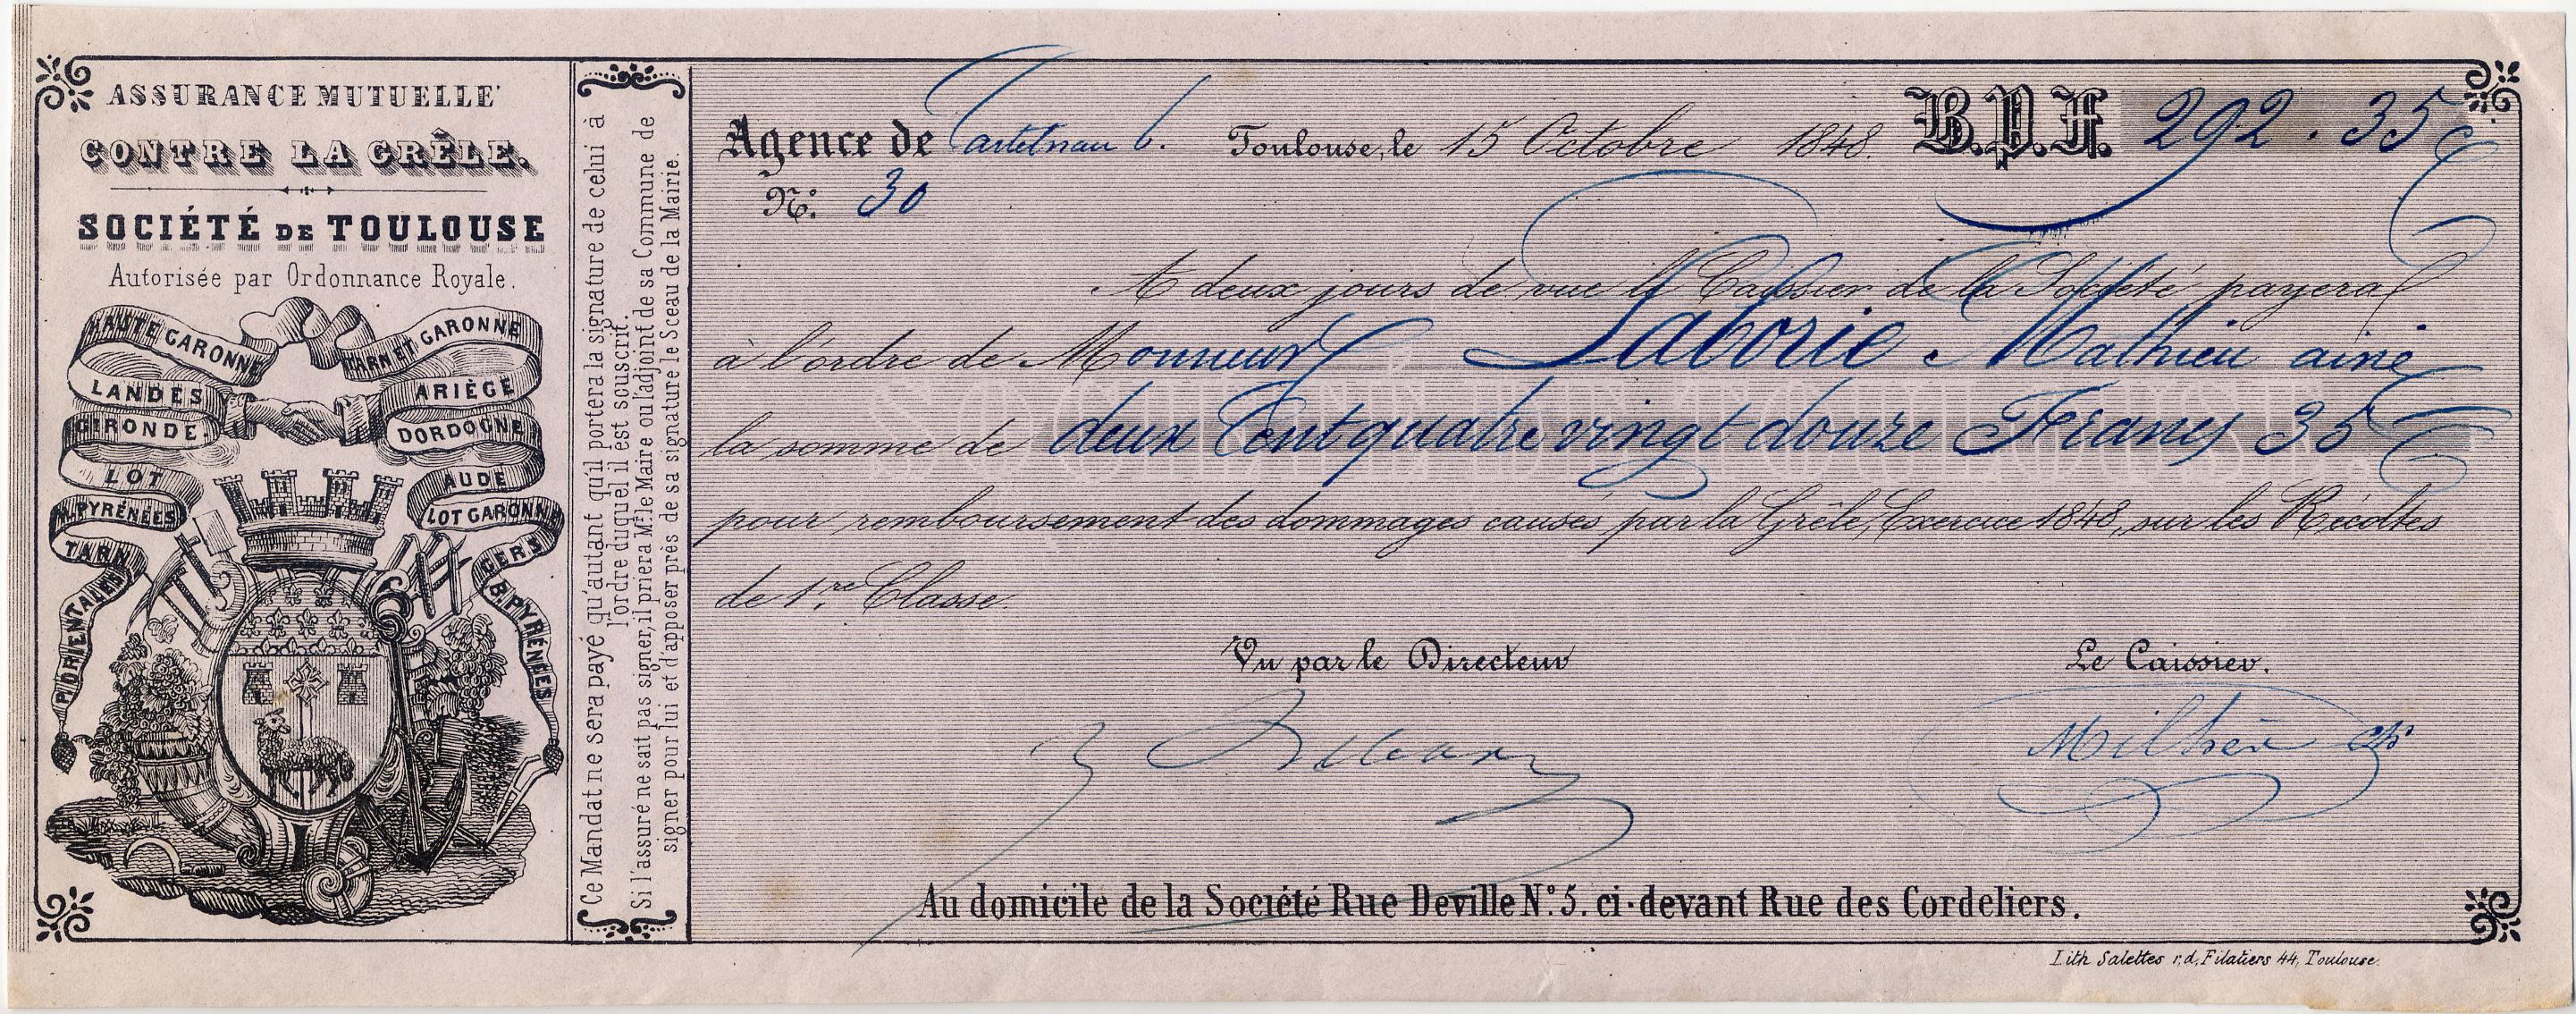 ASSURANCE MUTUELLE
CONTRE LA GRÊLE.
SOCIÉTÉ DE TOULOUSE
Autorisée par Ordonnance Royale.
HAUTE GARONNE
TARN ET GARONNE
LANDES
ARIÈGE
GIRONDE
DORDOGNE
LOT
AUDE
H. PYRÉNÉES
LOT GARONNE
TARN
GERS
P. ORIENTALES
B. PYRÉNÉES
Ce Mandat ne sera payé qu'autant qu'il portera la signature de celui à
l'ordre duquel il est souscrit.
Si l'assuré ne sait pas signer, il priera Mr. le Maire ou l'adjoint de sa Commune de
signer pour lui et d'apposer près de sa signature le Sceau de la Mairie.
Agence de Castelnau 6. Toulouse, le 15 Octobre 1848. B.P.F. 292.35
N°. 30
A deux jours de vue le Caissier de la Société payera
à l'ordre de Monsieur Laborie Mathieu ainé
SOCIÉTÉ DE TOULOUSE.
la somme de deux Cent quatre vingt douze Francs 35
pour remboursement des dommages causés par la Grêle, Exercice 1848, sur les Récoltes
de 1.re Classe.
Vu par le Directeur Le Caissier.
Au domicile de la Société Rue Deville N°. 5. ci-devant Rue des Cordeliers.
Lith Salettes r. d. Filatiers 44, Toulouse.